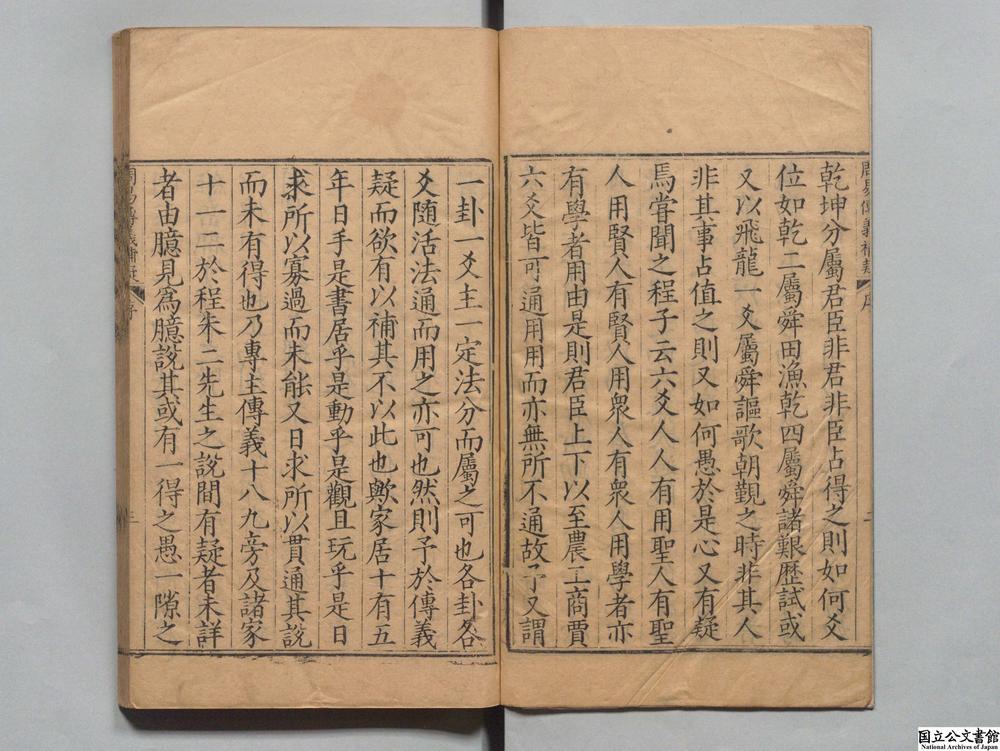 周易傳義補疑 序
乾坤分屬君臣非君非臣占得之則如何爻
位如乾二屬舜田漁乾四屬舜諸艱歷試或
又以飛龍一爻屬舜謳歌朝覲之時非其人
非其事占值之則又如何愚於是心又有疑
焉嘗聞之程子云六爻人人有用聖人有聖
人用賢人有賢人用衆人有衆人用學者亦
有學者用由是則君臣上下以至農工商賈
六爻皆可通用用而亦無所不通故予又謂
一卦一爻主一定法分而屬之可也各卦各
爻隨活法通而用之亦可也然則予於傳義
疑而欲有以補其不以此也歟家居十有五
年日手是書居乎是動乎是觀且玩乎是日
求所以寡過而未能又日求所以貫通其說
而未有得也乃專主傳義十八九旁及諸家
十一二於程朱二先生之說間有疑者未詳
者由臆見爲臆說其或有一得之愚一隙之
国立公文書館
National Archives of Japan